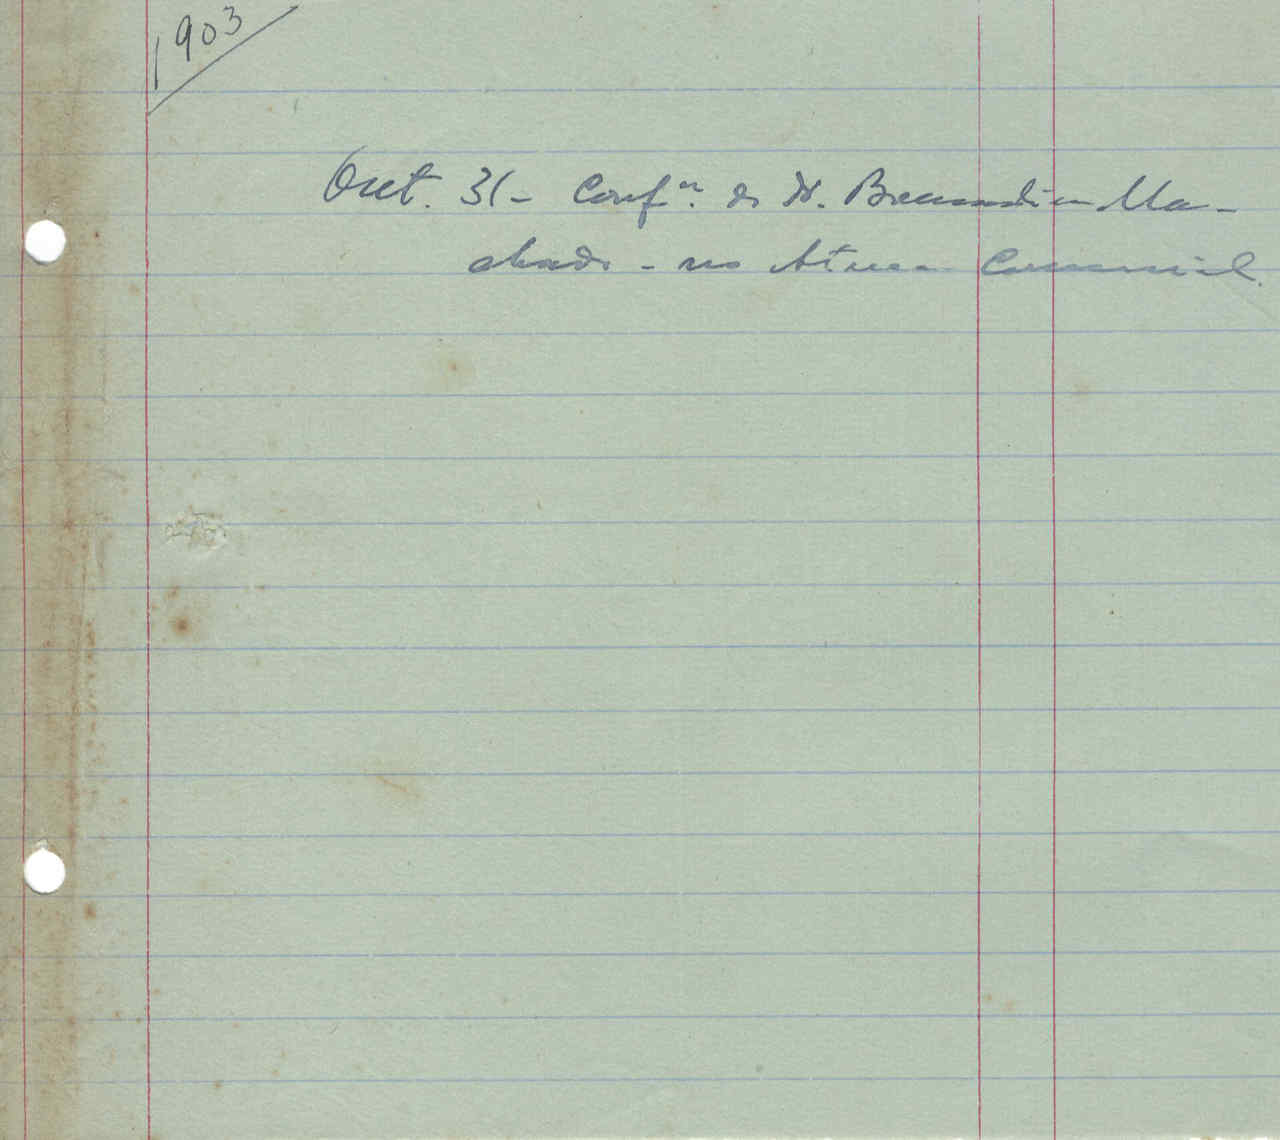 1903
Out. 31 - Confª. de B. Bernardino Ma-
chado - no Ateneu Comercial.